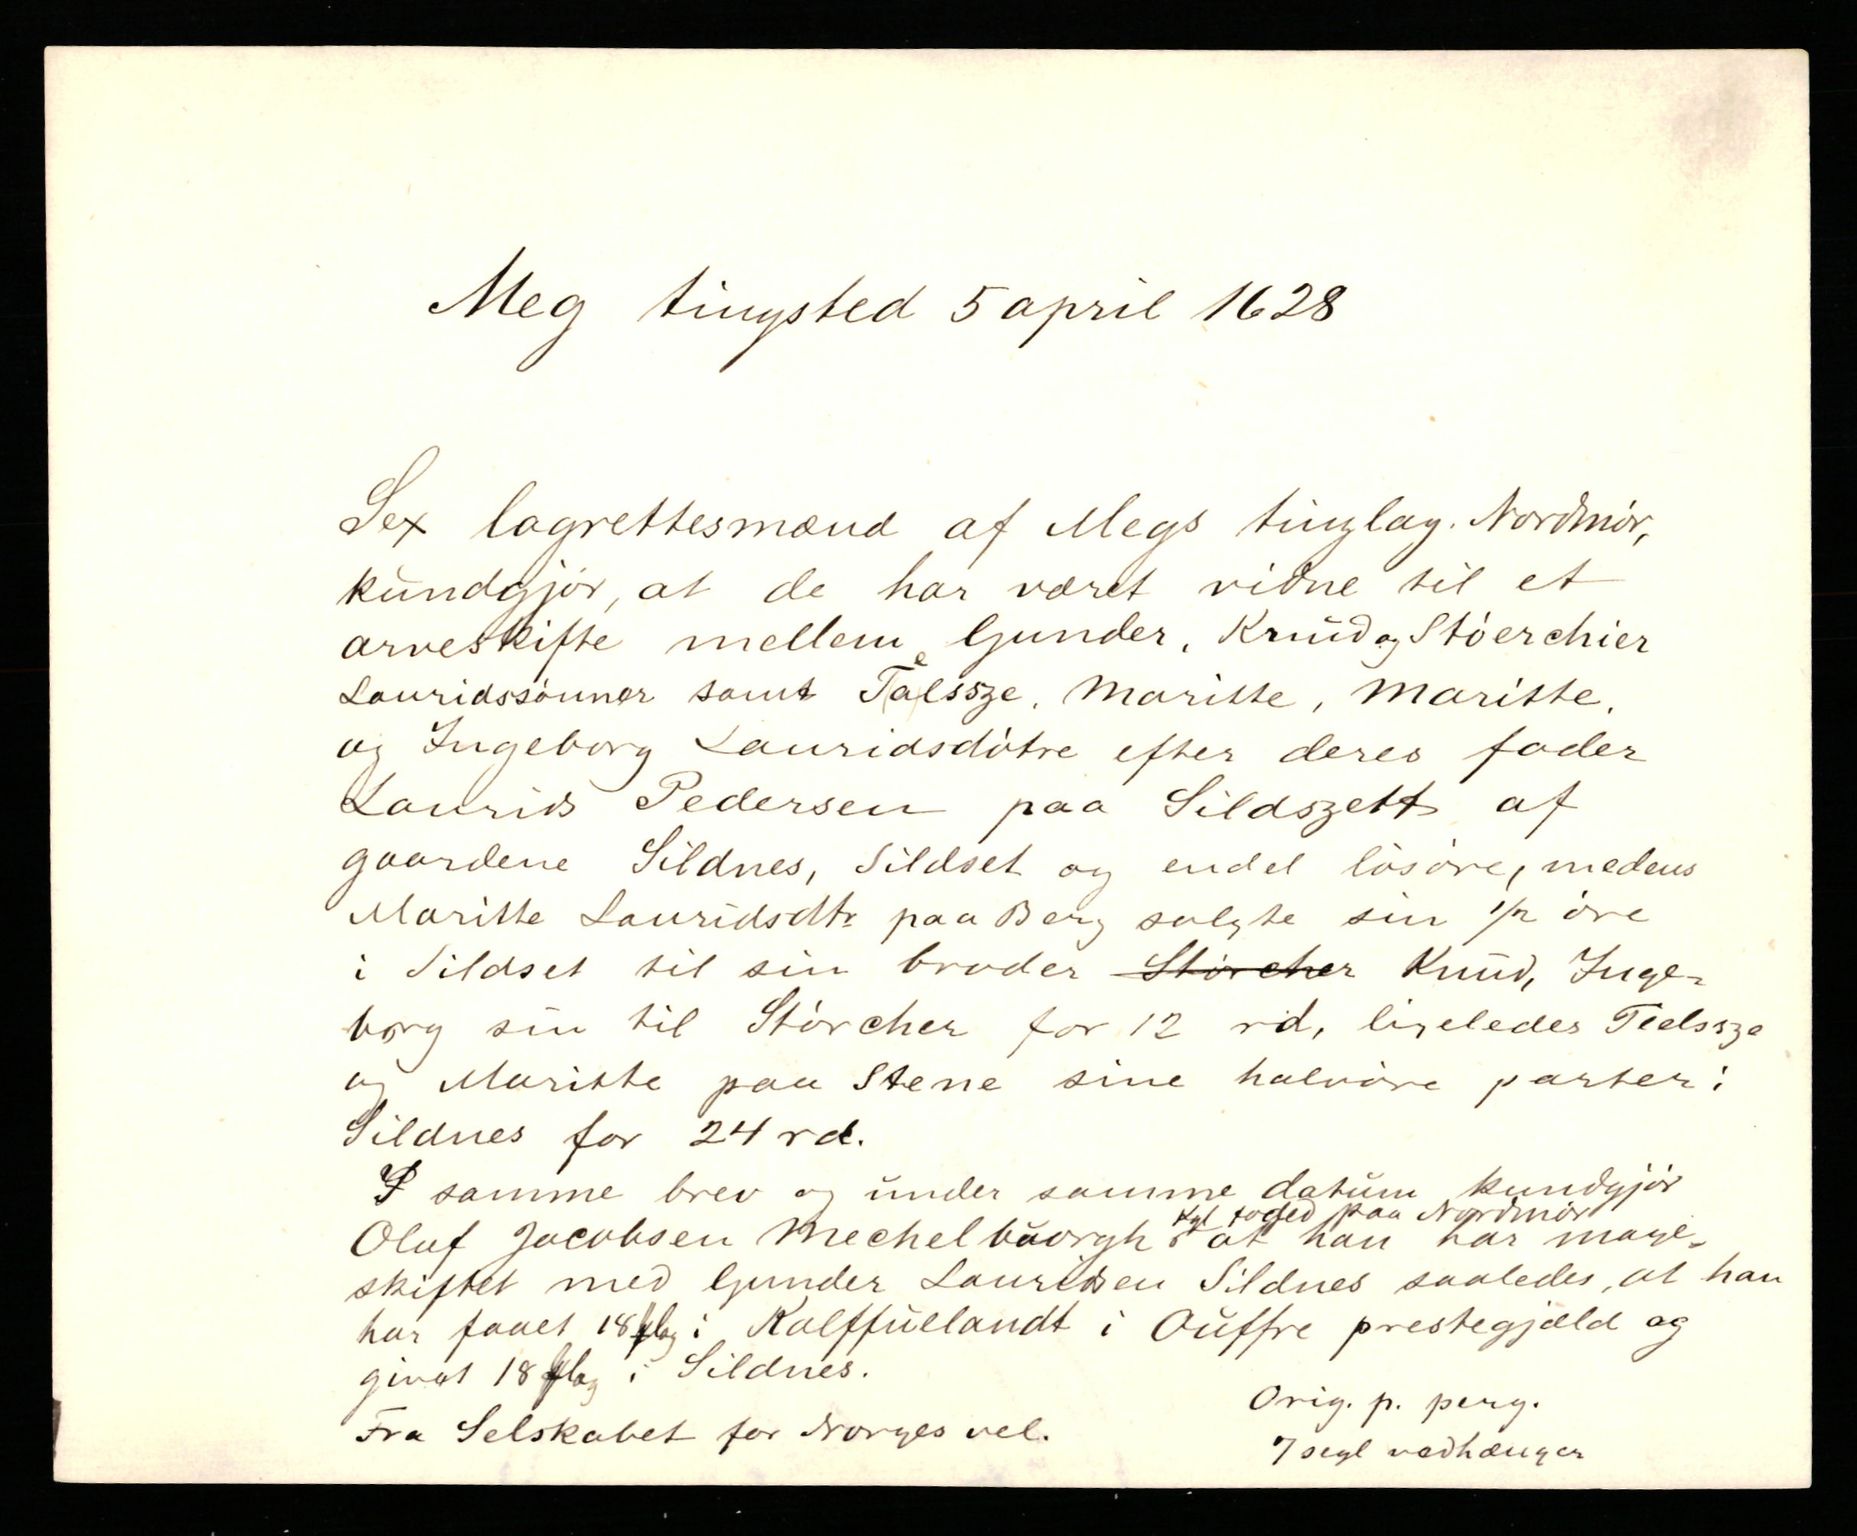 Meg tingsted 5 april 1628
Sex lagrettesmænd af Megs tinglag. Nordmör,
kundgjör, at de har været vidne til et
arveskifte mellem Gunder, Knud og Stöerchier
Lauridssönner samt Taelssze, Maritte, Maritte,
og Ingeborg Lauridsdötre efter deres fader
Laurids Pedersen paa Sildszett af
gaardene Sildnes, Sildset og endel lösöre, medens
Maritte Lauridsdtr paa Berg solgte sin 1/2 öre
i Sildset til sin broder Störcher Knud, Inge-
borg sin til Störcher for 12 rd, ligeledes Tielssze
og Maritte paa Stene sine halvöre parter i
Sildnes for 24 rd.
I samme brev og under samme datum kundgjör
Oluf Jacobsen Mechelbuorgh kgl foged paa Nordmör at han har mage-
skiftet med Gunder Lauridsen Sildnes saaledes, at han
har faaet 18 mlag i Kalffuelandt i Ouffre prestegjæld og
givet 18 mlag i Sildnes.
Fra Selskabet for Norges vel.
Orig. p. perg.
7 segl vedhænger